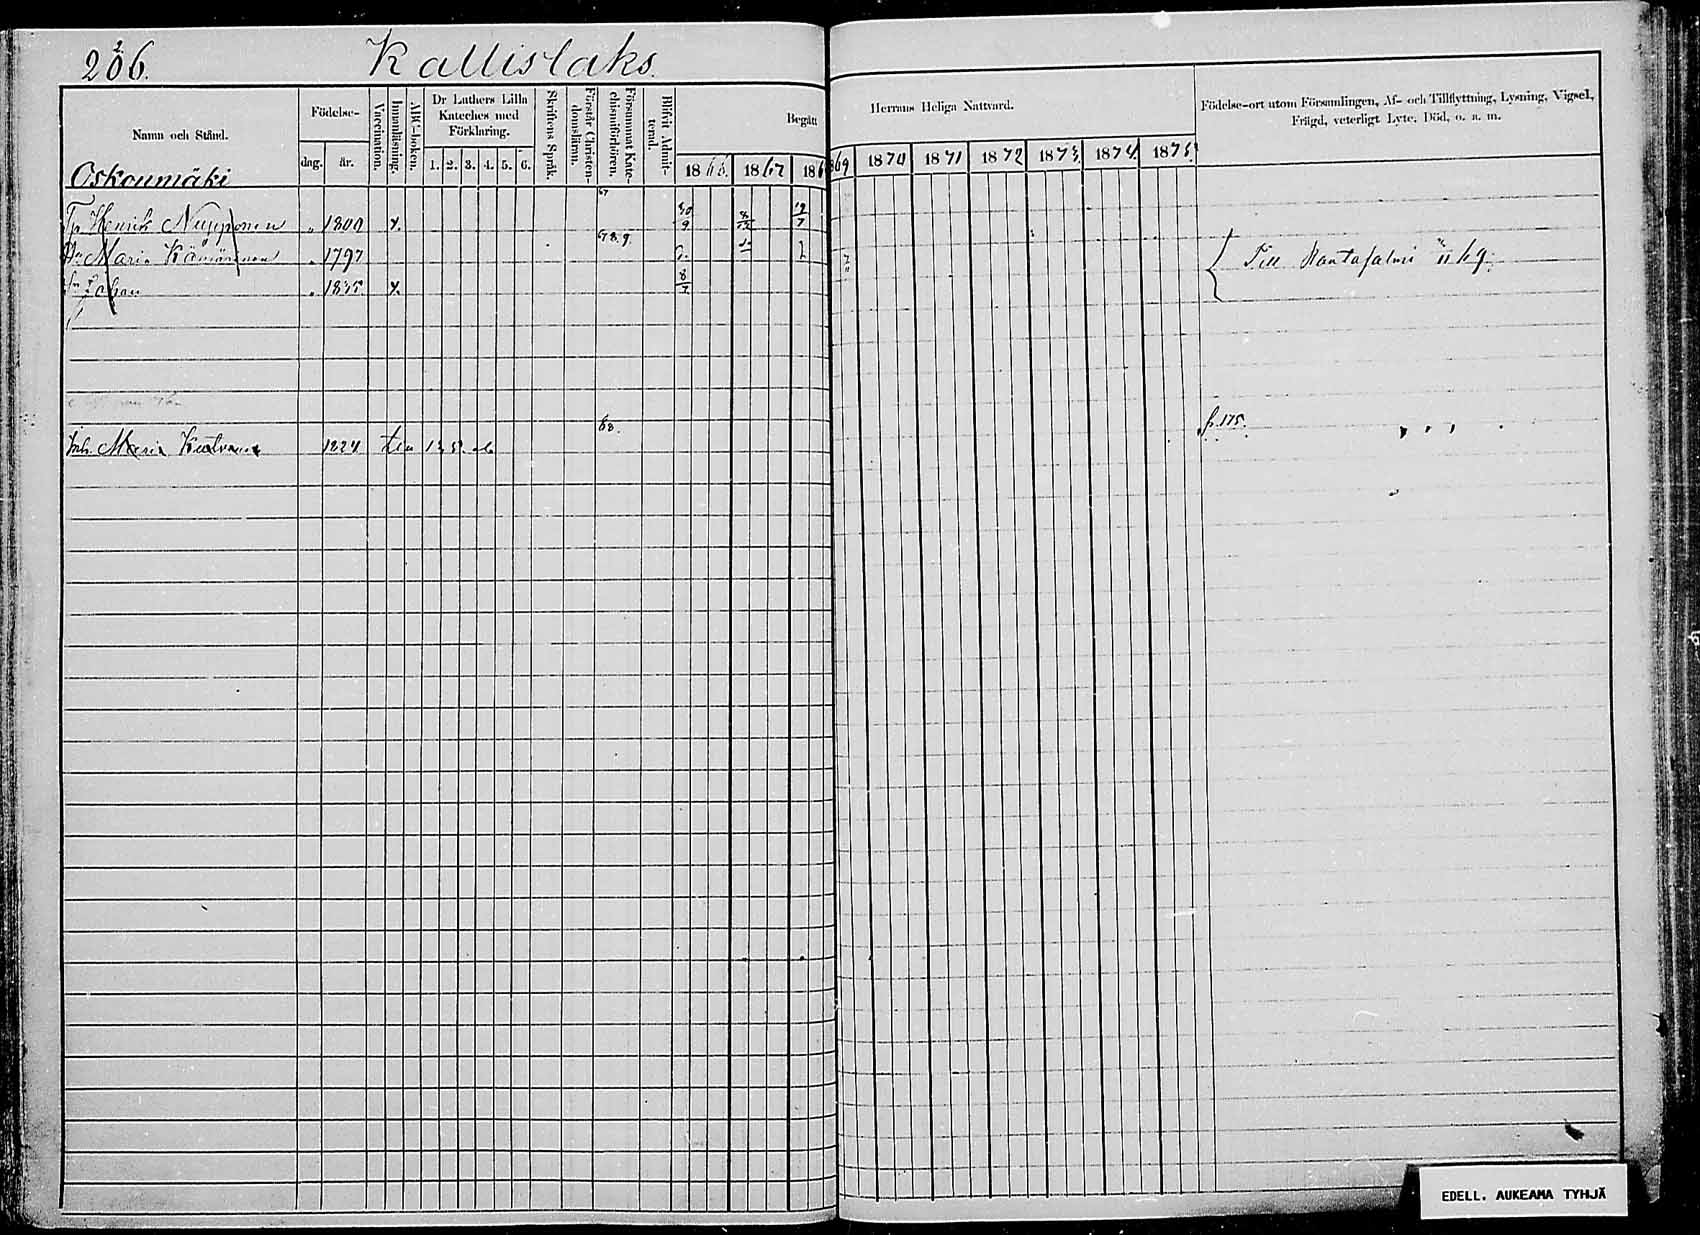 226.
Kallislaks.
Namn och Stånd.
Födelse-
dag. år.
Vaccination.
Innanläsning.
ABC-boken.
Dr Luthers Lilla Kateches med Förklaring.
1. 2. 3. 4. 5. 6.
Skriftens Språk.
Förstår Christen-domsläran.
Försummat Kate-chismiförhören.
Blifvit Admit-terad.
Begått
Herrans Heliga Nattvard.
1866. 1867 186
869 1870 1871 1872 1873. 1874. 1875.
Födelse-ort utom Församlingen, Af- och Tillflyttning, Lysning, Vigsel, Frägd, veterligt Lyte, Död, o. a. m.
Oskonmäki
67
Henrik Nupponen 1800 x.
67 8. 9.
Maria Kämäräinen 1797
Till Rantasalmi 11 69.
Johan 1835 x.
68.
p. 175.
Inh. Maria 1824
EDELL. AUKEAMA TYHJÄ